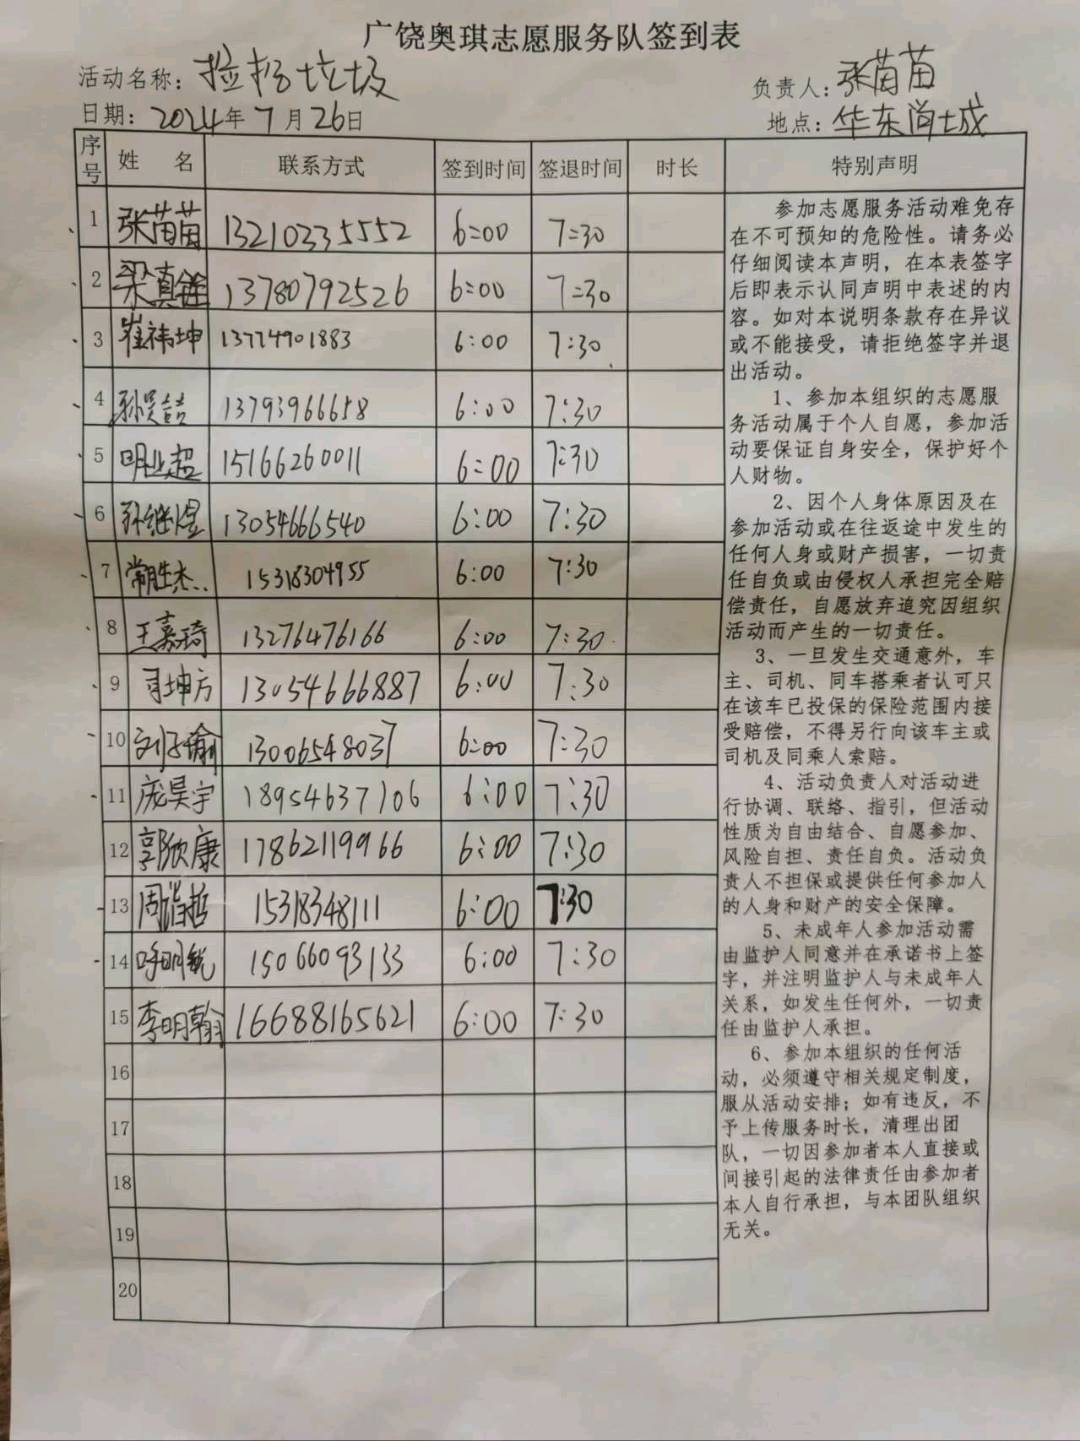 广饶奥琪志愿服务队签到表
活动名称：捡拾垃圾
负责人：张苗苗
日期：2024年7月26日
地点：华东尚城
序号 姓名 联系方式 签到时间 签退时间 时长 特别声明
1 张苗苗 13210335552 6:00 7:30
2 梁真铨 13780792526 6:00 7:30
3 崔祎坤 13774901883 6:00 7:30
4 孙昊喆 13793966658 6:00 7:30
5 明业超 15166260011 6:00 7:30
6 孙继煜 13054666540 6:00 7:30
7 常胜杰 15318304955 6:00 7:30
8 王嘉琦 13276476166 6:00 7:30
9 司坤方 13054666887 6:00 7:30
10 刘子瑜 13006548037 6:00 7:30
11 庞昊宇 18954637106 6:00 7:30
12 郭欣康 17862119966 6:00 7:30
13 周浩哲 15318348111 6:00 7:30
14 呼明锐 15066093133 6:00 7:30
15 李明翰 16688165621 6:00 7:30
16
17
18
19
20
参加志愿服务活动难免存
在不可预知的危险性。请务必
仔细阅读本声明，在本表签字
后即表示认同声明中表述的内
容。如对本说明条款存在异议
或不能接受，请拒绝签字并退
出活动。
1、参加本组织的志愿服
务活动属于个人自愿，参加活
动要保证自身安全，保护好个
人财物。
2、因个人身体原因及在
参加活动或在往返途中发生的
任何人身或财产损害，一切责
任自负或由侵权人承担完全赔
偿责任，自愿放弃追究因组织
活动而产生的一切责任。
3、一旦发生交通意外，车
主、司机、同车搭乘者认可只
在该车已投保的保险范围内接
受赔偿，不得另行向该车主或
司机及同乘人索赔。
4、活动负责人对活动进
行协调、联络、指引，但活动
性质为自由结合、自愿参加、
风险自担、责任自负。活动负
责人不担保或提供任何参加人
的人身和财产的安全保障。
5、未成年人参加活动需
由监护人同意并在承诺书上签
字，并注明监护人与未成年人
关系，如发生任何外，一切责
任由监护人承担。
6、参加本组织的任何活
动，必须遵守相关规定制度，
服从活动安排；如有违反，不
予上传服务时长，清理出团
队，一切因参加者本人直接或
间接引起的法律责任由参加者
本人自行承担，与本团队组织
无关。